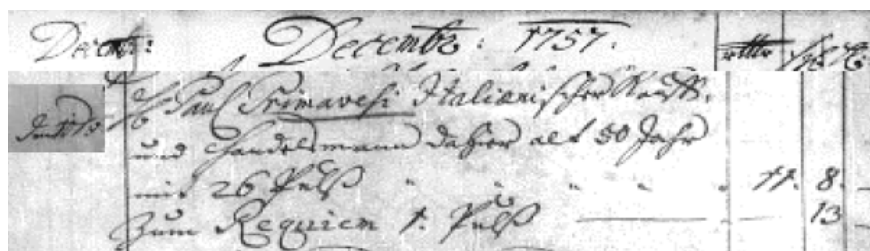 Decembr: Decembr: 1757.
H Paul Primavesi Italianischer Kauff-
und Handelsmann dahier alt 50 Jahr
mit 26 Pulß " " " " " 11. 8.
Zum Requiem 1. Pulß 13